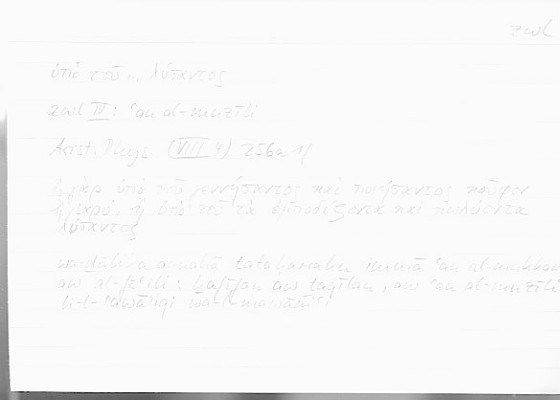 zwl
ὑπὸ τοῦ .. λύσαντος
zwl IV: ʿan al-muzīli
Arist. Phys (VIII 4) 256a 1/
ἢ γὰρ ὑπὸ τοῦ γεννήσαντος καὶ ποιήσαντος κοῦφον
ἢ βαρύ, ἢ ὑπὸ τοῦ τὰ ἐμποδίζοντα καὶ κωλύοντα
λύσαντος
wa-ḏālika annahā tataḥarraku immā ʿan al-mukkaw
aw al-fāʿili: ḫafīfan aw ṯaqīlan, aw ʿan al-muzīli
li-l-ʿawāʾiqi wa-l-mawāniʿi